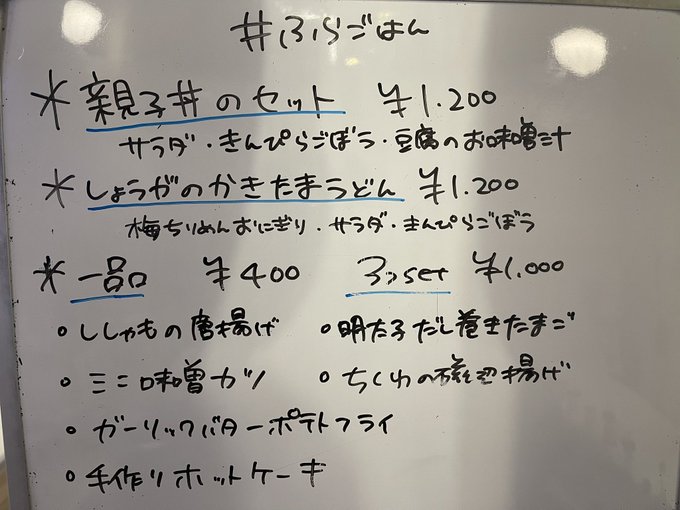 #ふらごはん
* 親子丼のセット ¥1.200
サラダ・きんぴらごぼう・豆腐のお味噌汁
* しょうがのかきたまうどん ¥1.200
梅ちりめんおにぎり・サラダ・きんぴらごぼう
* 一品 ¥400 3つset ¥1.000
○ ししゃもの唐揚げ ○ 明太子だし巻きたまご
○ ミニ味噌カツ ○ ちくわの磯辺揚げ
○ ガーリックバターポテトフライ
○ 手作りホットケーキ